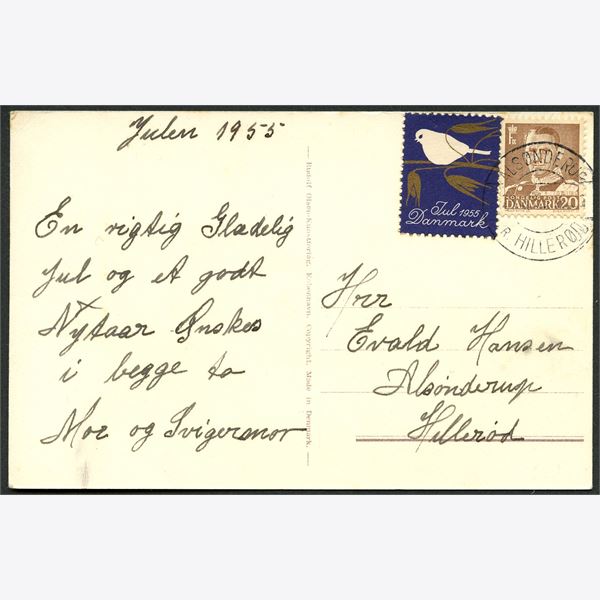 Julen 1955
En rigtig Glædelig
Jul og et godt
Nytaar Ønskes
i begge to
Mor og Svigermor
Rudolf Olsens Kunstforlag, København. Copyright. Made in Denmark.
Jul 1955
Danmark
DANMARK 20
ALSØNDERUP
PR. HILLERØD
Hrr
Evald Hansen
Alsønderup
Hillerød